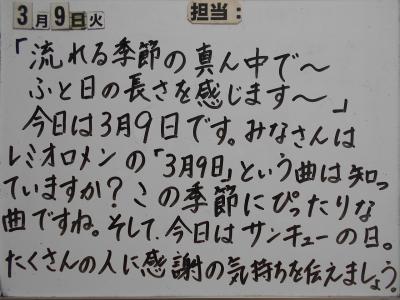 3月9日火 担当:
「流れる季節の真ん中で〜
ふと日の長さを感じます〜」
今日は3月9日です。みなさんは
レミオロメンの「3月9日」という曲は知っ
ていますか?この季節にぴったりな
曲ですね。そして、今日はサンキューの日。
たくさんの人に感謝の気持ちを伝えましょう。